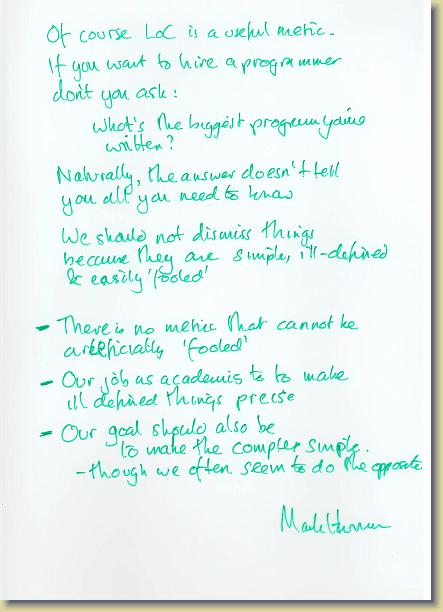 Of course LoC is a useful metric.
If you want to hire a programmer
don't you ask:
What's the biggest program you've
written?
Naturally, the answer doesn't tell
you all you need to know
We should not dismiss things
because they are simple, ill-defined
& easily 'fooled'
- There is no metric that cannot be
artificially 'fooled'
- Our job as academics is to make
ill defined things precise
- Our goal should also be
to make the complex simple.
- though we often seem to do the opposite.
Mark Harman